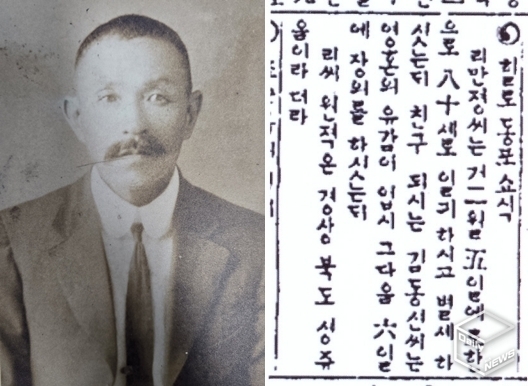 힐로 동포 쇼식
리만정씨는 거二월 五일에
으로 八十세로 일긔하시고 별세하
싯는듸 친구 되시는 김동선씨는
영혼의 유감이 업시 그다음 六일
에 장의를 하싯는듸
리씨 원적은 경상북도 성쥬
움이라더라
Daily
NEWS